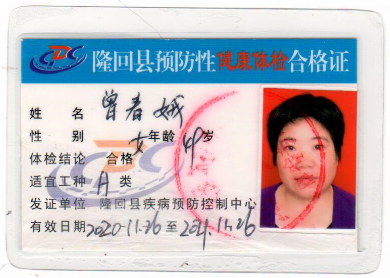 CDC 隆回县预防性健康体检合格证
姓 名 曾春娥
性 别 女 年龄 岁
体检结论 合格
适宜工种 A 类
发证单位 隆回县疾病预防控制中心
有效日期 2020-11-26 至 2021.11.26